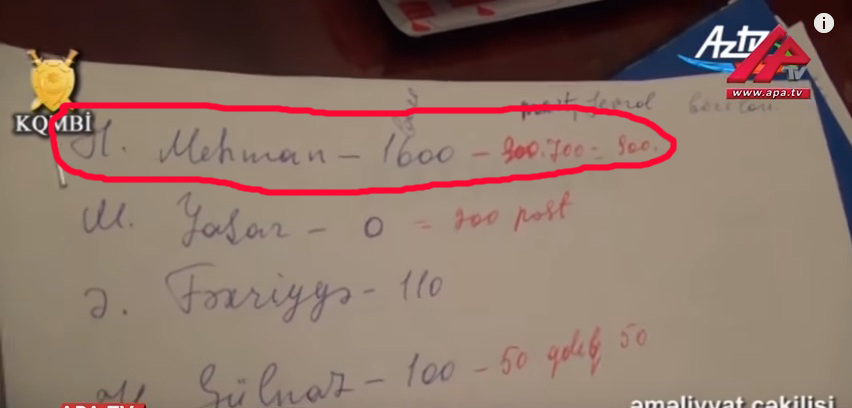 i
AzTV
APA TV
www.apa.tv
KQMBİ
mart, fevral borcları.
H. Mehman – 1600 – 900.700 = 900.
M. Yaşar – 0 = 200 post
Ə. Fəxriyyə – 110
Gülnaz – 100 – 50 qəleb 50
APA TV
əməliyyat çəkilişi